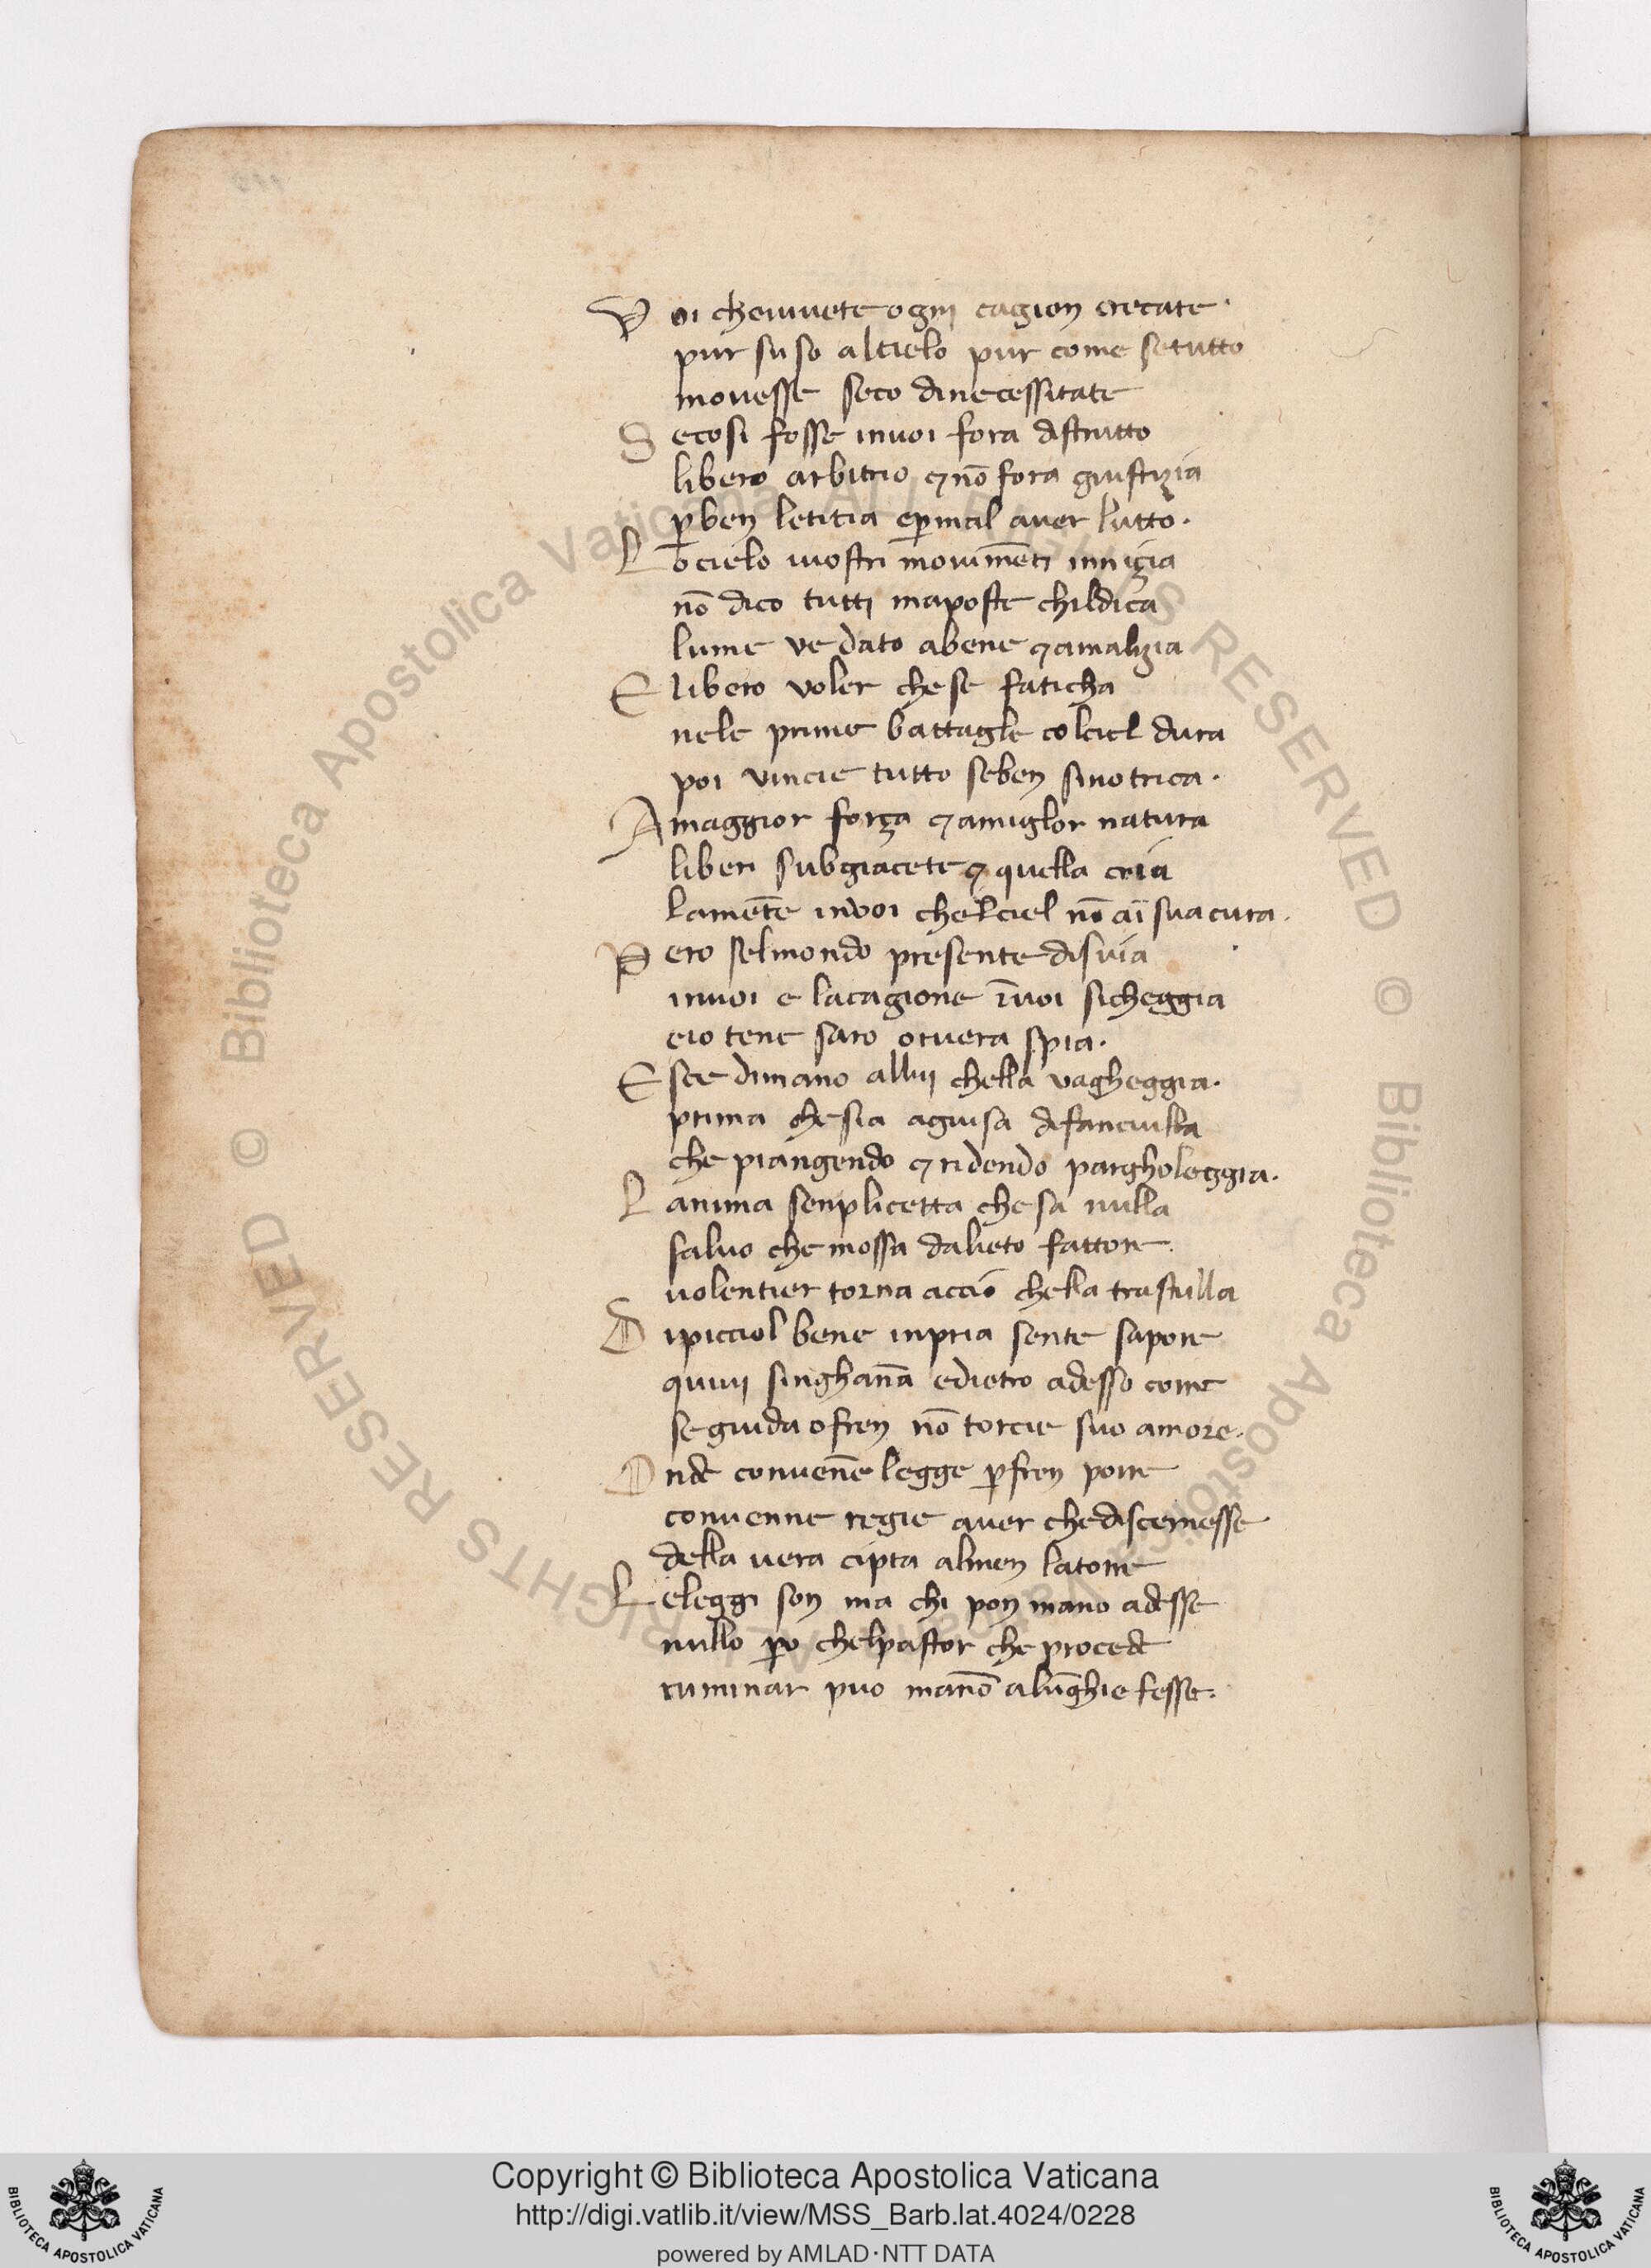 V oi cheuiuete ogni cagion crecate.
pur suso alcielo pur come setutto
mouesse seco dinecessitate
S ecosi fosse inuoi fora distrutto
libero arbitrio ⁊ nō fora giustizia
ꝑ ben letitia eꝑ mal auer lutto.
L o cielo iuostri mouimēti innizia
nō dico tutti maposte childica
lume ve dato abene ⁊ amalizia
E libero voler chese faticha
nele prime battagle colciel dura
poi vincie tutto seben sinotrica.
A maggior força ⁊ amiglor natura
liberi subgiacete ⁊ quella cria
lamēte inuoi chelciel nō ai suacura.
P ero selmondo presente disuia
inuoi e lacagione īuoi sicheggia
eio tene saro oruera spia.
E sce dimano allui chella vagheggia.
prima chesia aguisa difanciulla
che piangendo ⁊ ridendo pargholeggia.
L anima senplicetta chesa nulla
saluo che mossa dalieto fattore
uolentier torna accio chella trastulla
D ipicciol bene inpria sente sapore
quiui singhanā edietro adesso corre
se guida ofren nō torcie suo amore.
O nde conuenē legge ꝑ fren porre
conuenne regie auer chediscernesse
della uera cipta almen latorre
L eleggi son ma chi pon mano adesse
nullo ꝑo chelpastor che procede
ruminar puo manō alūghie fesse.
Copyright © Biblioteca Apostolica Vaticana
http://digi.vatlib.it/view/MSS_Barb.lat.4024/0228
powered by AMLAD·NTT DATA
BIBLIOTECA APOSTOLICA VATICANA
BIBLIOTECA APOSTOLICA VATICANA
© Biblioteca Apostolica Vaticana ALL RIGHTS RESERVED © Biblioteca Apostolica Vaticana ALL RIGHTS RESERVED